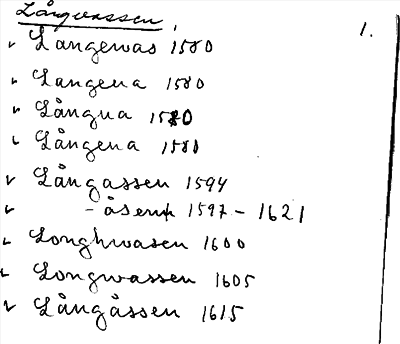 Långvassen, 1.
v Långewas 1580
v Langena 1580
v Långua 1580
v Långena 1580
v Långassen 1594
v - åsenn 1597 - 1621
v Longhwasen 1600
v Longwassen 1605
v Långåssen 1615